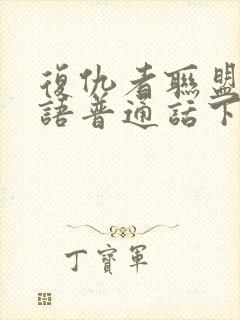 復仇者聯盟
語普通話下
丁寶軍